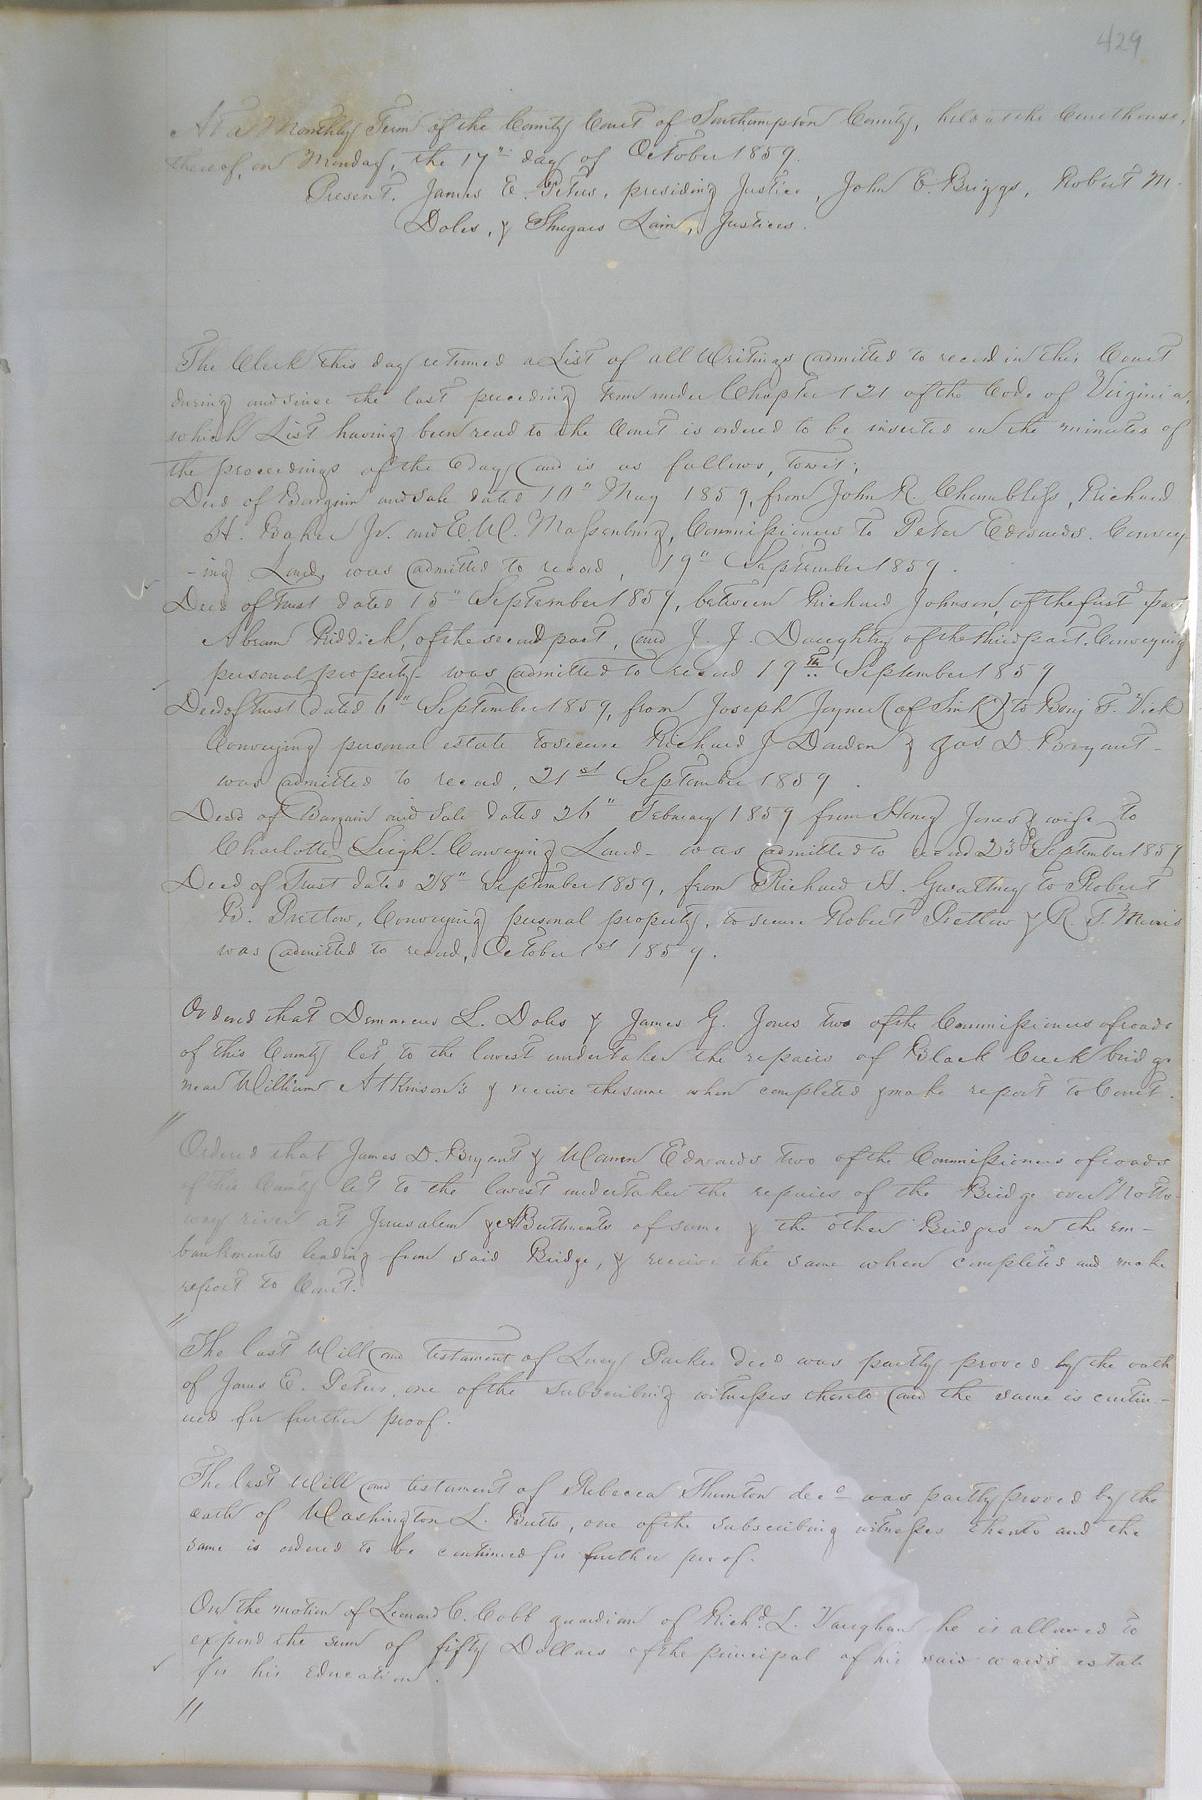 429
At a Monthly Term of the County Court of Southampton County, held at the Courthouse,
thereof, on Monday, the 17" day of October 1859.
Present. James E. Peters, presiding Justice, John E. Briggs, Robert M.
Doles, & Shugars Lain, Justices.
The Clerk this day returned a List of all Writings admitted to record in this Court
during and since the last preceding term under Chapter 121 of the Code of Virginia,
which List having been read to the Court is ordered to be inserted in the minutes of
the proceedings of the day and is as follows, towit;
Deed of Bargain and sale dated 10" May 1859, from John R. Chambless, Richard
H. Baker Jr. and E. W. Massenburg, Commissioners to Peter Edwards. Convey
-ing Land, was admitted to record, 19" September 1859.
Deed of Trust dated 15" September 1859, between Richard Johnson, of the first part
Abram Riddick, of the second part, and J. J. Daughtry of the third part. Conveying
personal property - was admitted to record 19th September 1859
Deed of Trust dated 6" September 1859, from Joseph Joyner (of Sink) to Benj F. Vick
Conveying personal estate to secure Richard J Darden & Jas D. Bryant -
was admitted to record, 21st September 1859.
Deed of Bargain and Sale dated 26" February 1859 from Henry Jones & wife to
Charlotte Leigh - Conveying Land - was admitted to record 23d September 1859
Deed of Trust dated 28" September 1859, from Richard H. Gwaltney to Robert
B. Pretlow, Conveying personal property, to secure Robert Pretlow & R. T.
was admitted to record, October 1st 1859.
Ordered that Demarcus L. Doles & James G. Jones two of the Commissioners of roads
of this County let to the lowest undertaker the repairs of Black Creek bridge
near William Atkinson's & receive the same when completed & make report to Court.
"
Ordered that James D. Bryant & Warren Edwards two of the Commissioners of roads
of this County let to the lowest undertaker the repairs of the Bridge over Notto-
way river at Jerusalem & Abuttments of same & the other Bridges in the em-
bankments leading from said Bridge, & receive the same when completed and make
report to Court.
"
The last Will and testament of Lucy Parker decd was partly proved by the oath
of James E. Peters, one of the subscribing witnesses thereto and the same is contin-
ued for further proof.
The last Will and testament of Rebecca Thornton decd was partly proved by the
oath of Washington L. Butts, one of the subscribing witnesses thereto and the
same is ordered to be continued for further proof.
On the motion of Leonard C. Cobb guardian of Richd. L. Vaughan he is allowed to
expend the sum of fifty Dollars of the principal of his said ward's estate
for his education.
"